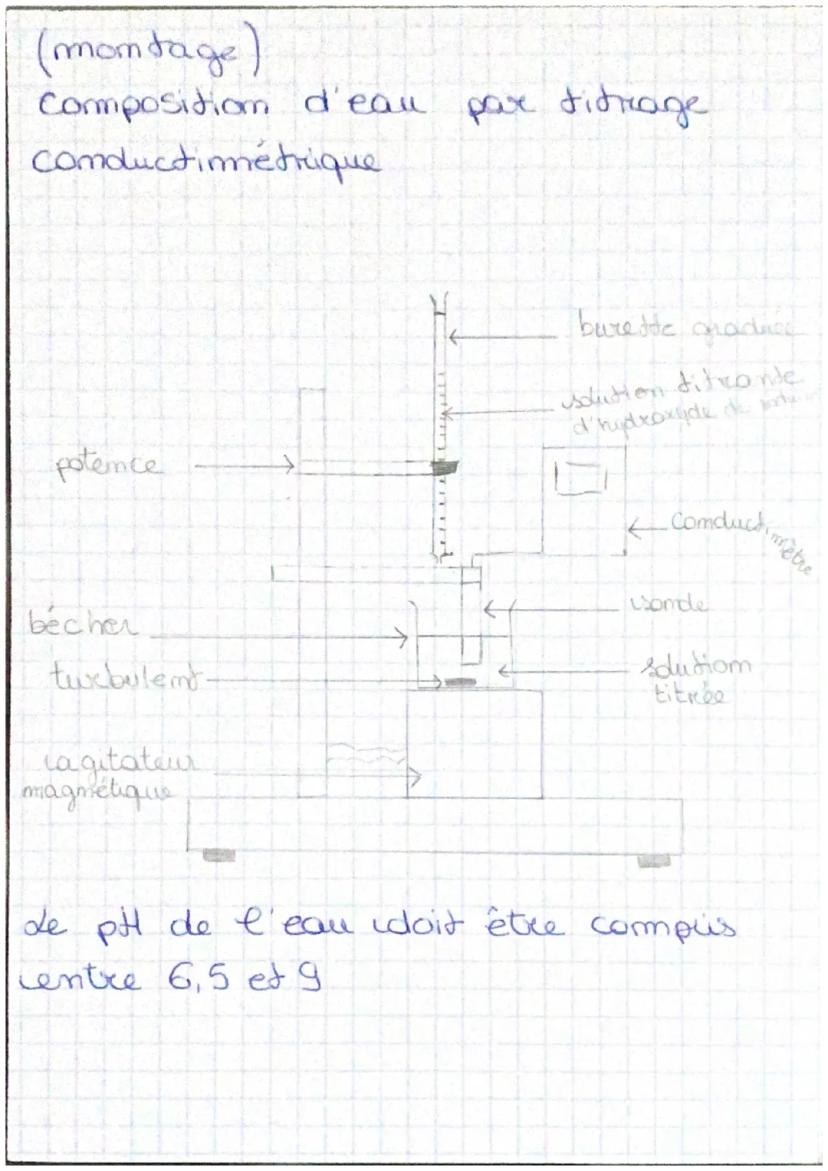 (montage)
composition d'eau par titrage
conductimétrique
burette graduée
solution titrante
d'hydroxyde de
potence
conductimètre
sonde
bécher
turbulent
solution
titrée
agitateur
magnétique
Le pH de l'eau doit être compris
entre 6,5 et 9